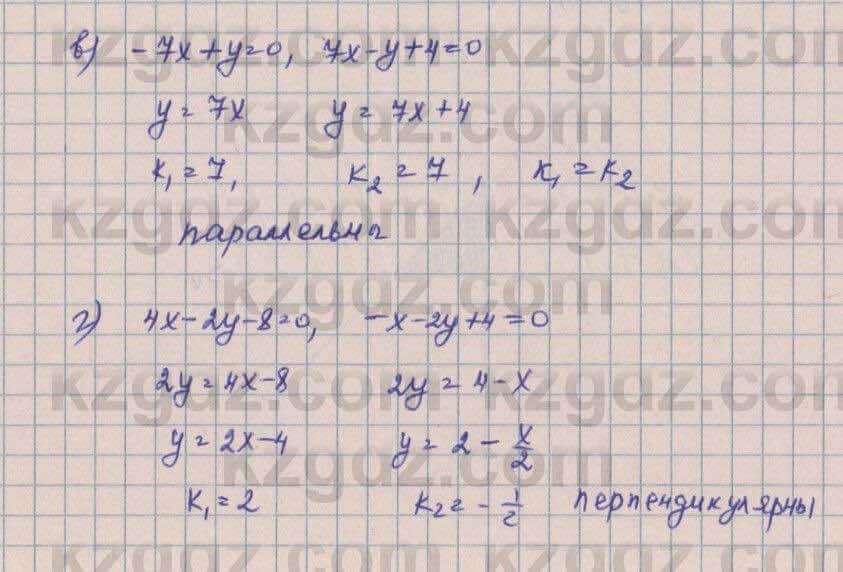 в) -7x+y=0, 7x-y+4=0
y=7x y=7x+4
K₁=7, K₂=7, K₁=K₂
параллельны
г) 4x-2y-8=0, -x-2y+4=0
2y=4x-8 2y=4-x
y=2x-4 y=2-x/2
K₁=2 K₂=-1/2 перпендикулярны
kzgdz.com